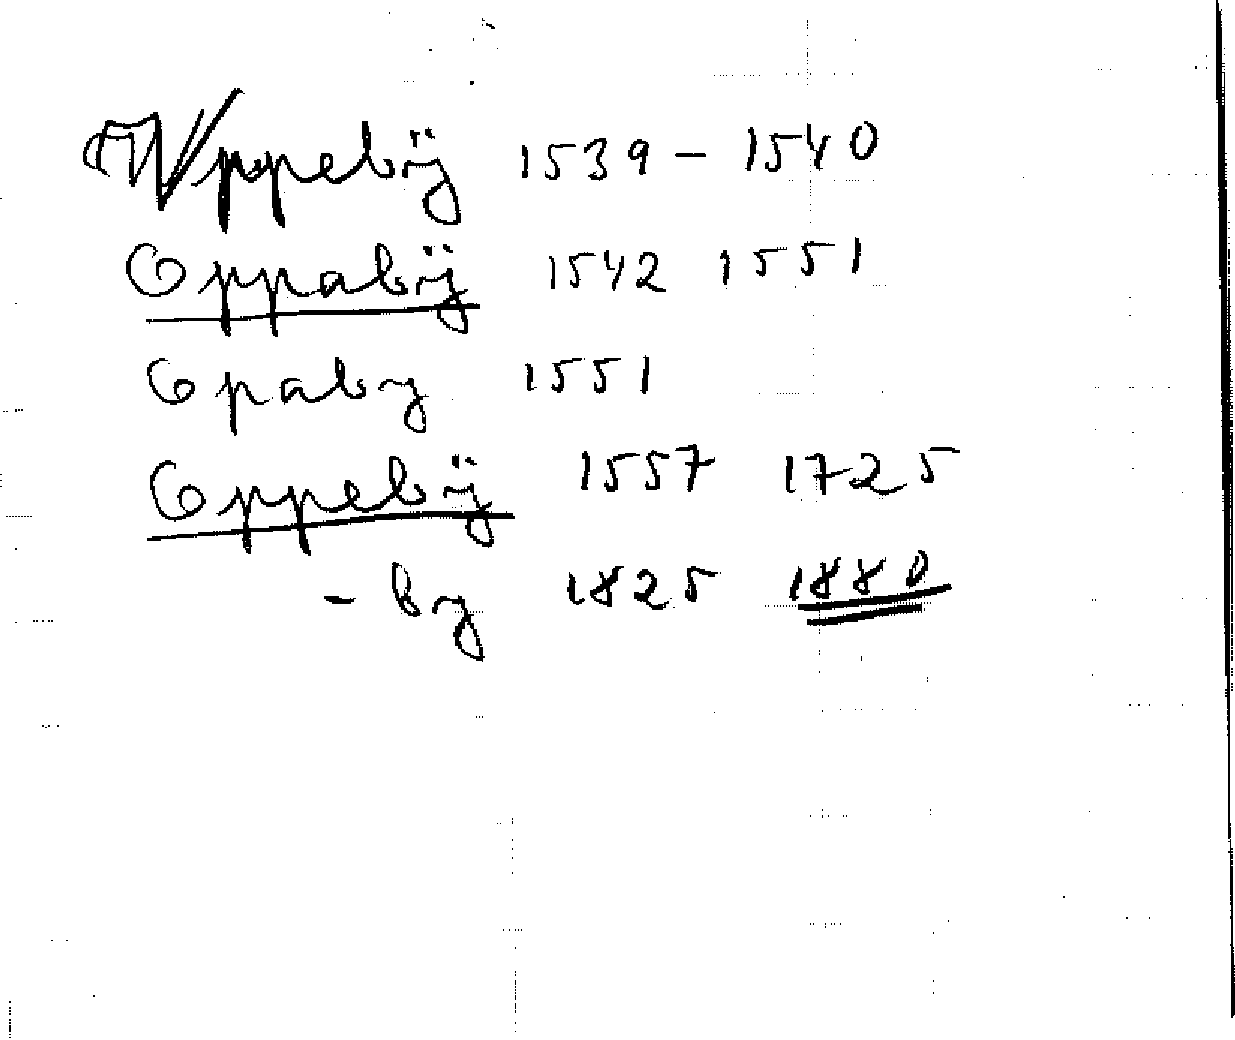 Wppebÿ 1539 - 1540
Oppabÿ 1542 1551
Opaby 1551
Oppebÿ 1557 1725
- by 1825 1880